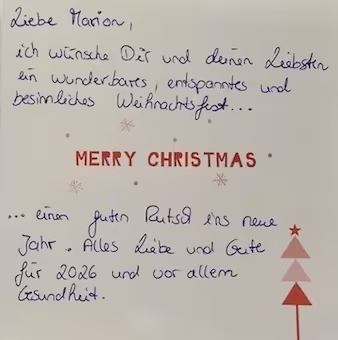 Liebe Marion,
ich wünsche Dir und deinen Liebsten
ein wunderbares, entspanntes und
besinnliches Weihnachtsfest...
MERRY CHRISTMAS
... einen guten Rutsch ins neue
Jahr. Alles Liebe und Gute
für 2026 und vor allem
Gesundheit.